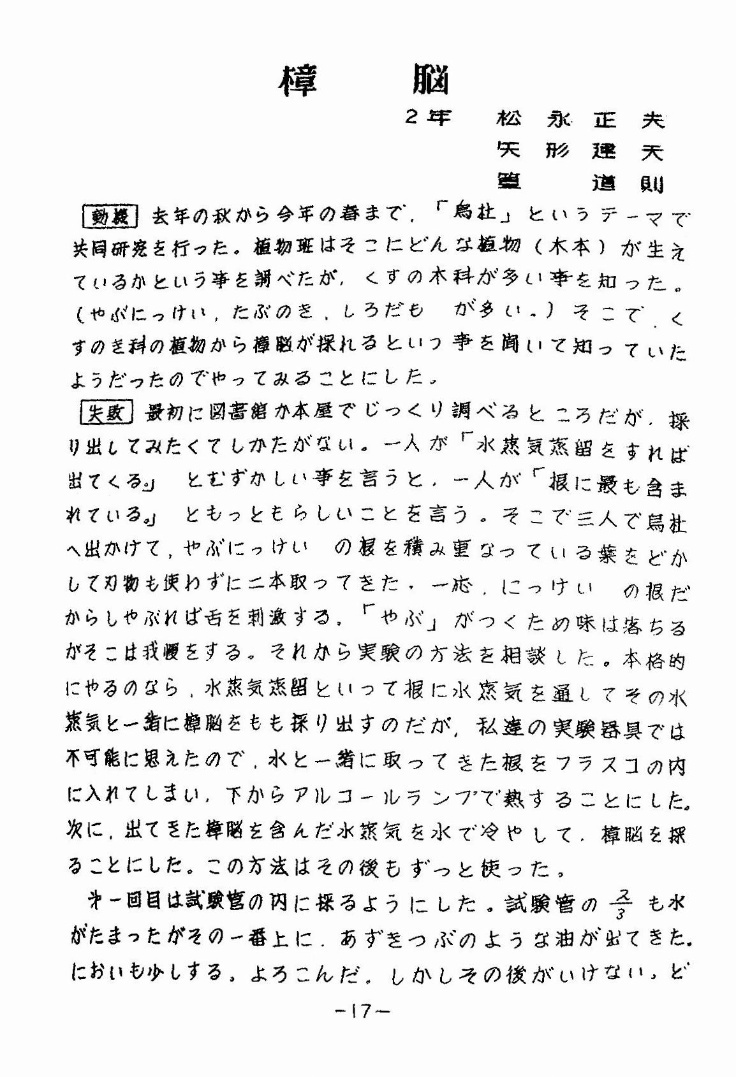 樟　脳
2年　松永正夫
矢形建天
豊　道則
動機 去年の秋から今年の春まで,「烏杜」というテーマで
共同研究を行った。植物班はそこにどんな植物(木本)が生え
ているかという事を調べたが,くすの木科が多い事を知った。
(やぶにっけい,たぶのき,しろだも　が多い。)そこで,く
すのき科の植物から樟脳が採れるというう事を聞いて知っていた
ようだったのでやってみることにした。
失敗 最初に図書館か本屋でじっくり調べるところだが,採
り出してみたくてしかたがない。一人が「水蒸気蒸留をすれば
出てくる。」とむずかしい事を言うと,一人が「根に最も含ま
れている。」ともっともらしいことを言う。そこで三人で烏杜
へ出かけて,やぶにっけい　の根を積み重なっている葉をどか
して刃物も使わずに二本取ってきた。一応,にっけい　の根だ
からしゃぶれば舌を刺激する,「やぶ」がつくため味は落ちる
がそこは我慢をする。それから実験の方法を相談した。本格的
にやるのなら,水蒸気蒸留といって根に水蒸気を通してその水
蒸気と一緒に樟脳をもも採り出すのだが,私達の実験器具では
不可能に思えたので,水と一緒に取ってきた根をフラスコの内
に入れてしまい,下からアルコールランプで熱することにした。
次に,出てきた樟脳を含んだ水蒸気を水で冷やして,樟脳を採
ることにした。この方法はその後もずっと使った。
オ一回目は試験管の内に採るようにした。試験管の 2/3 も水
がたまったがその一番上に,あずきつぶのような油が出てきた。
においも少しする。よろこんだ。しかしその後がいけない。ど
-17-